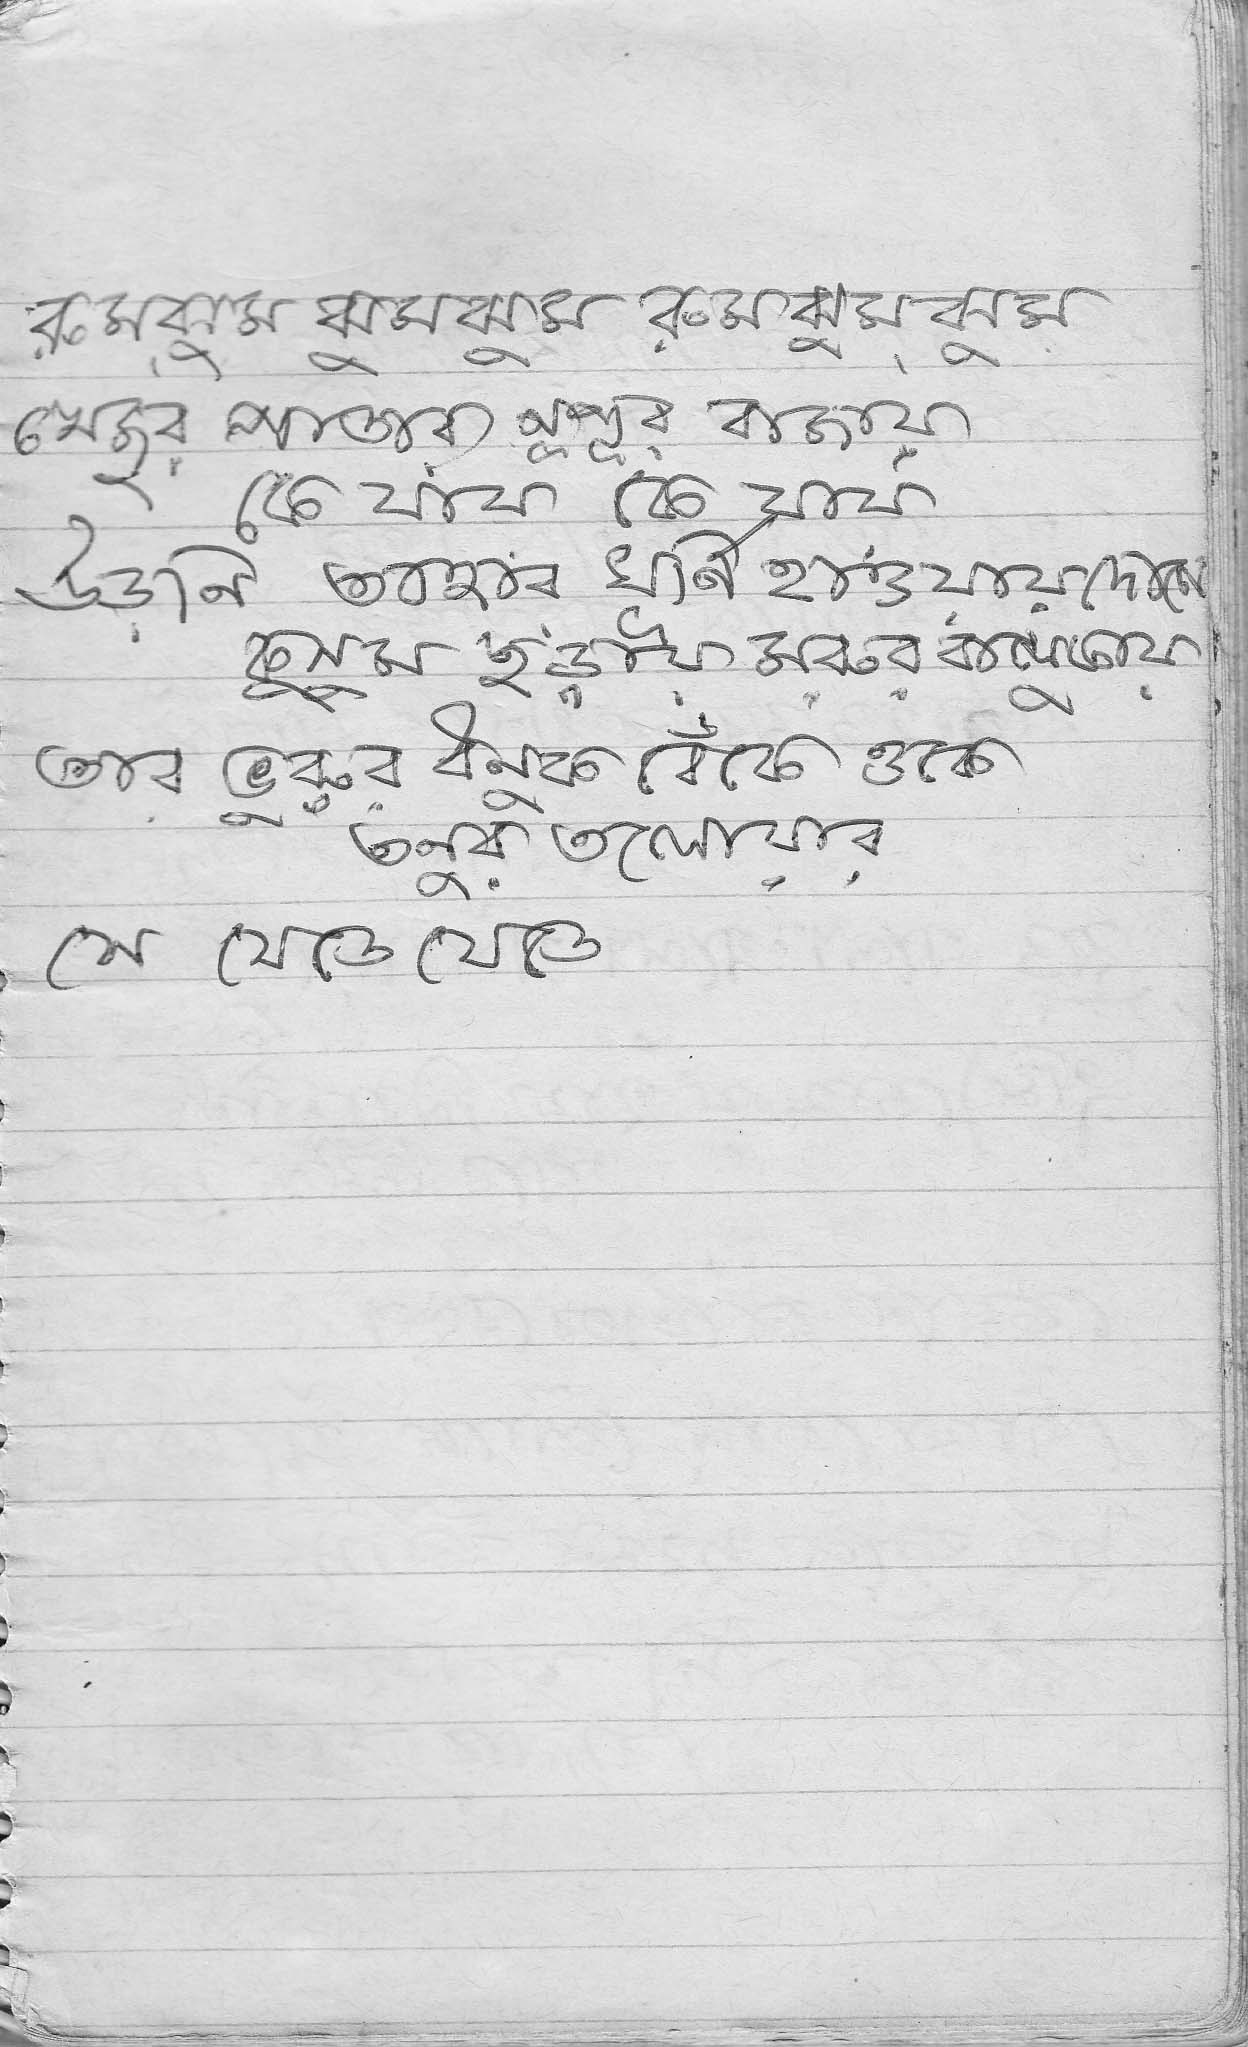 রুমঝুম ঝুমঝুম রুমঝুমঝুম
খেজুর পাতার নূপুর বাজায়
কে যায় কে যায়
উড়ানি তাহার ঘূর্ণি হাওয়ায় দোলে
কুসুম ছড়ায় মরুর বালুতায়
তার ভুরুর ধনুক বেঁকে ওকে
তনুর তলোয়ার
সে যেতে যেতে